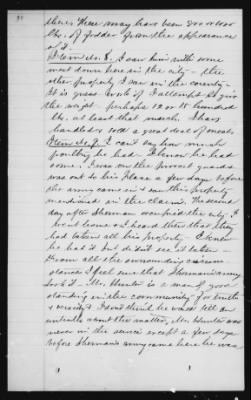 there. There may have been 800 or 1000
lbs. of fodder from the appearance
of it.
Item No. 8. I saw him with some
meat down here in the city – the
other property I saw in the country –
It is guess work if I attempt to give
the weight. perhaps 12 or 15 hundred
lbs. at least that much. I have
handled & sold a great deal of meat.
Item No. 9. I can't say how much
poultry he had. I know he had
some. I was on the provost guard &
was out to his place a few days before
the army came in & saw this property
mentioned in the claim. The second
day after Sherman occupied the city I
went home & I heard then that they
had taken all this property. I know
he had it but didn't see it taken –
From all the surrounding circum
stances I feel sure that Sherman's army
took it – Mr. Hunter is a man of good
standing in the community for truth
& veracity & I don't think he would tell an
untruth about this matter. Mr. Hunter was
never in the service except a few days
before Sherman's army came here he was